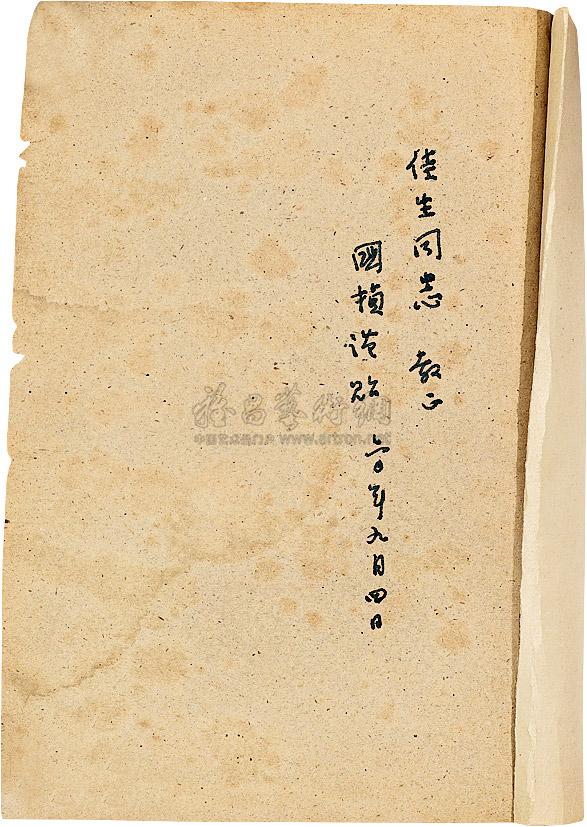 佳生同志 教正
國楨謹貽 六〇年九月四日
雅昌藝術網
中国艺术品门户 www.artron.net